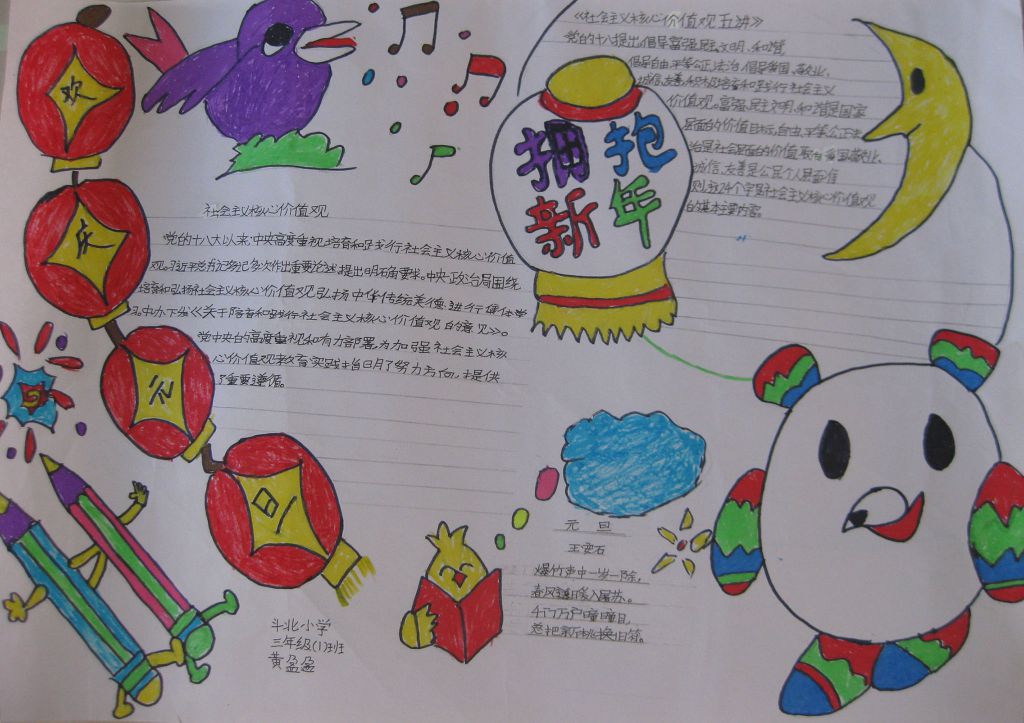 欢
庆
元
旦
社会主义核心价值观
党的十八大以来,中央高度重视培育和践行社会主义核心价值
观。习近平总书记多次作出重要论述、提出明确要求。中央政治局围绕
培育和弘扬社会主义核心价值观,弘扬中华传统美德,进行集体学
习。中办下发《关于培育和践行社会主义核心价值观的意见》。
党中央的高度重视和有力部署,为加强社会主义核
心价值观教育实践指明了努力方向,提供
了重要遵循。
拥抱
新年
《社会主义核心价值观五讲》
党的十八提出,倡导富强、民主、文明、和谐
倡导自由、平等公正、法治,倡导爱国、敬业、
诚信、友善,积极培育和践行社会主义
价值观。富强、民主文明、和谐是国家
层面的价值目标,自由、平等公正法
治是社会层面的价值取向爱国、敬业、
诚信、友善是公民个人层面准
则,这24个字是社会主义核心价值观
的基本主要内容。
元 旦
王安石
爆竹声中一岁除,
春风送暖入屠苏。
千门万户曈曈日,
总把新桃换旧符。
斗北小学
三年级(1)班
黄盈盈